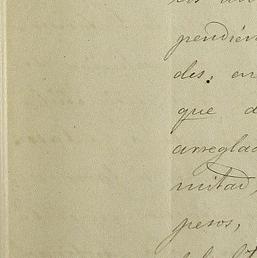 pendién
des; en
que a
arregla
mitad,
pesos,